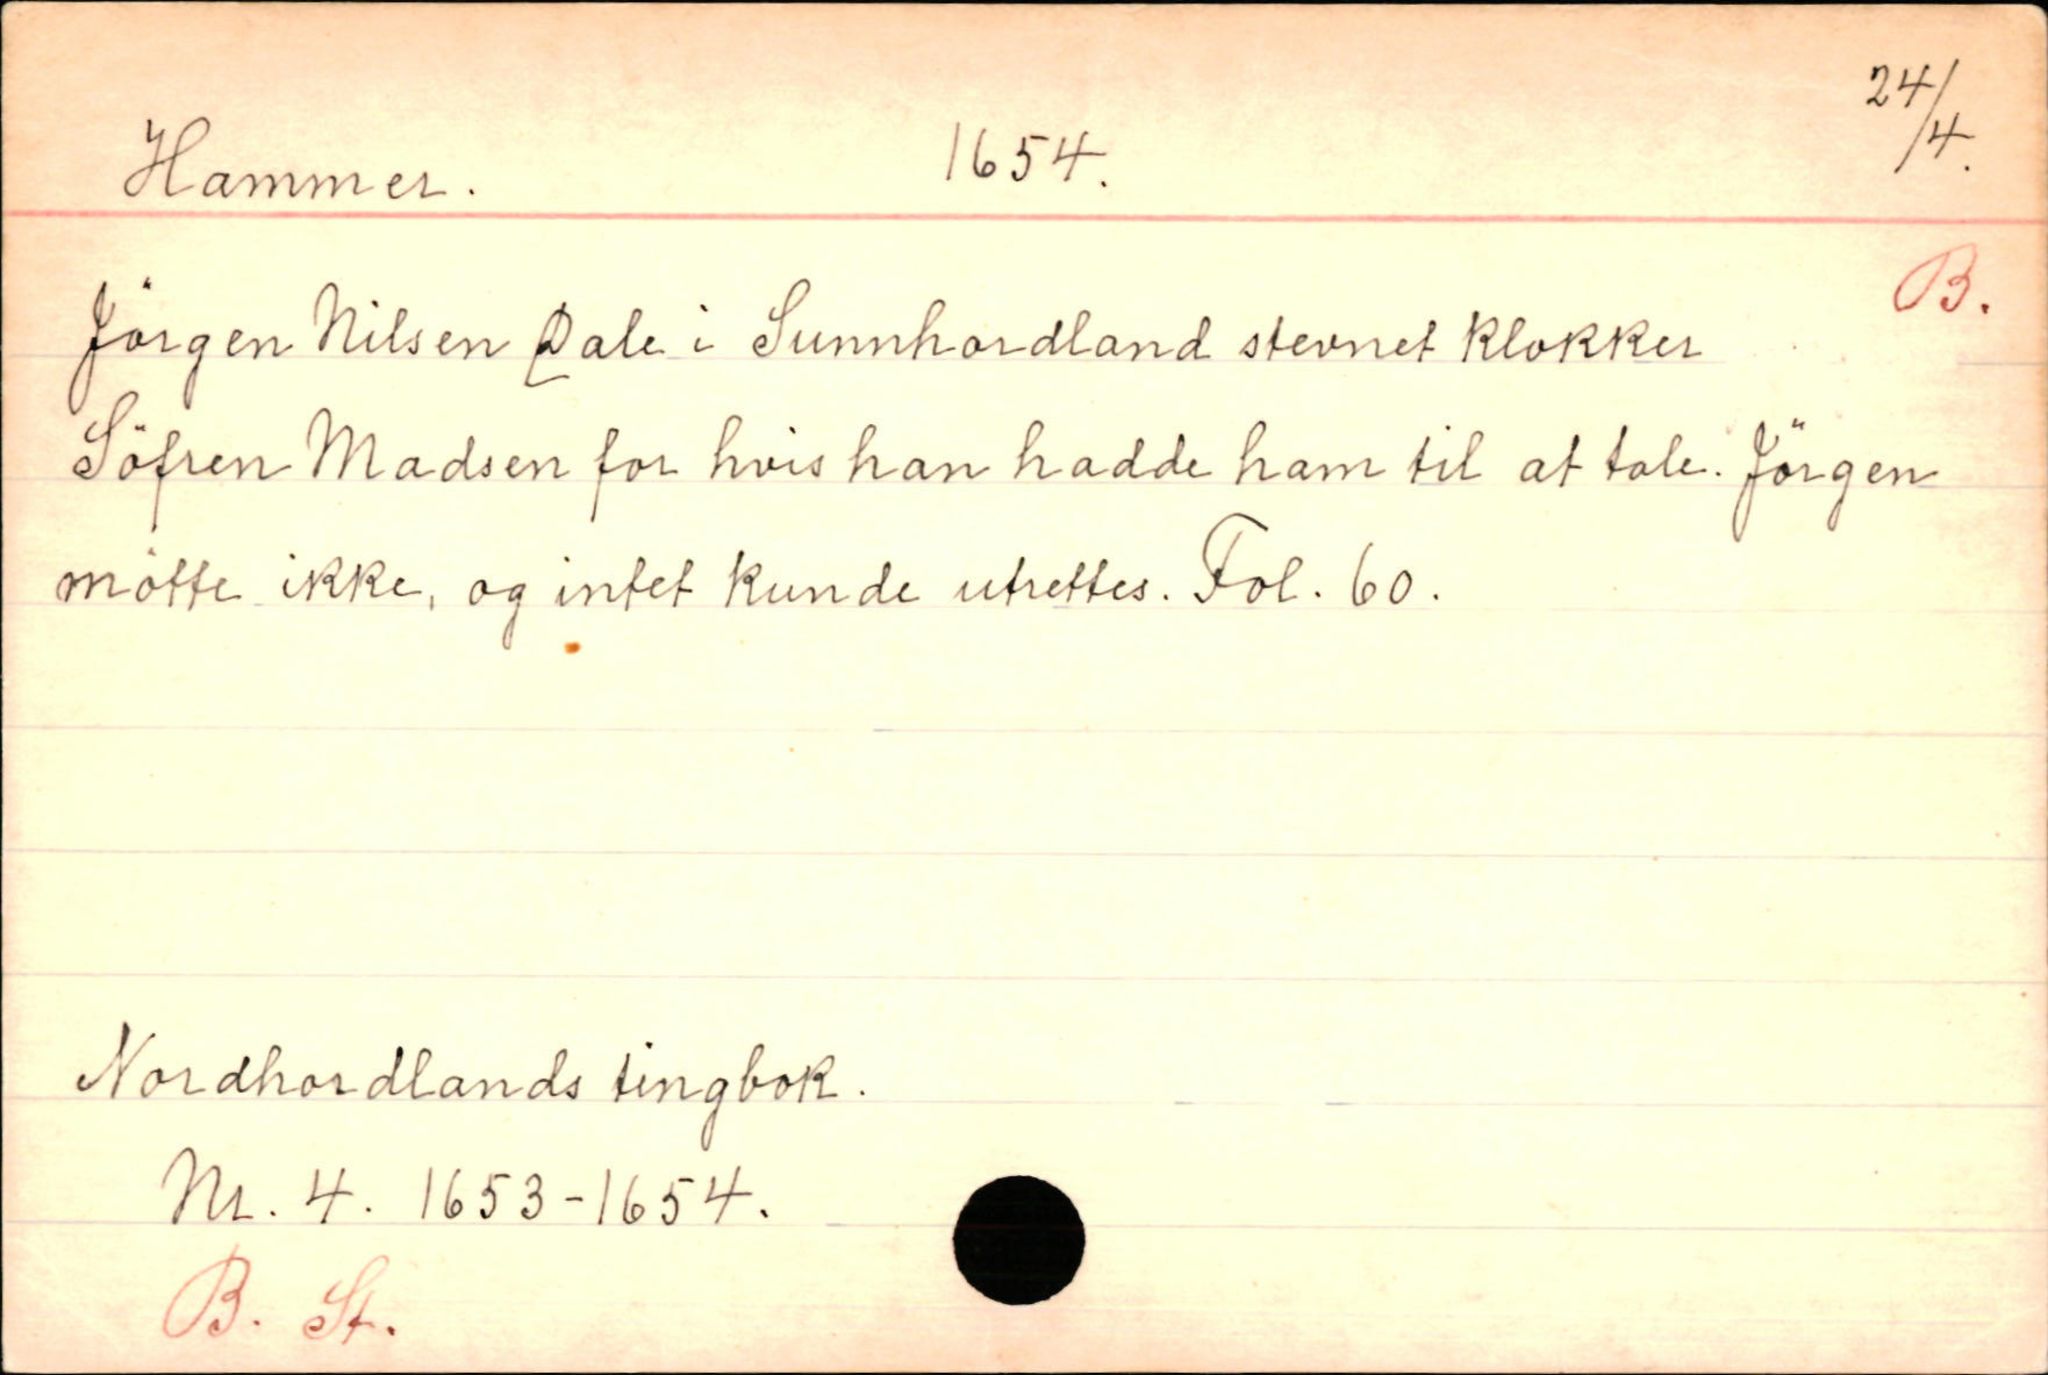 Hammer. 1654. 24/4.
B.
Jörgen Nilsen Dale i Sunnhordland stevnet klokker
Söfren Madsen for hvis han hadde ham til at tale. Jörgen
mötte ikke, og intet kunde utrettes. Fol. 60.
Nordhordlands tingbok.
Nr. 4. 1653-1654.
B. St.